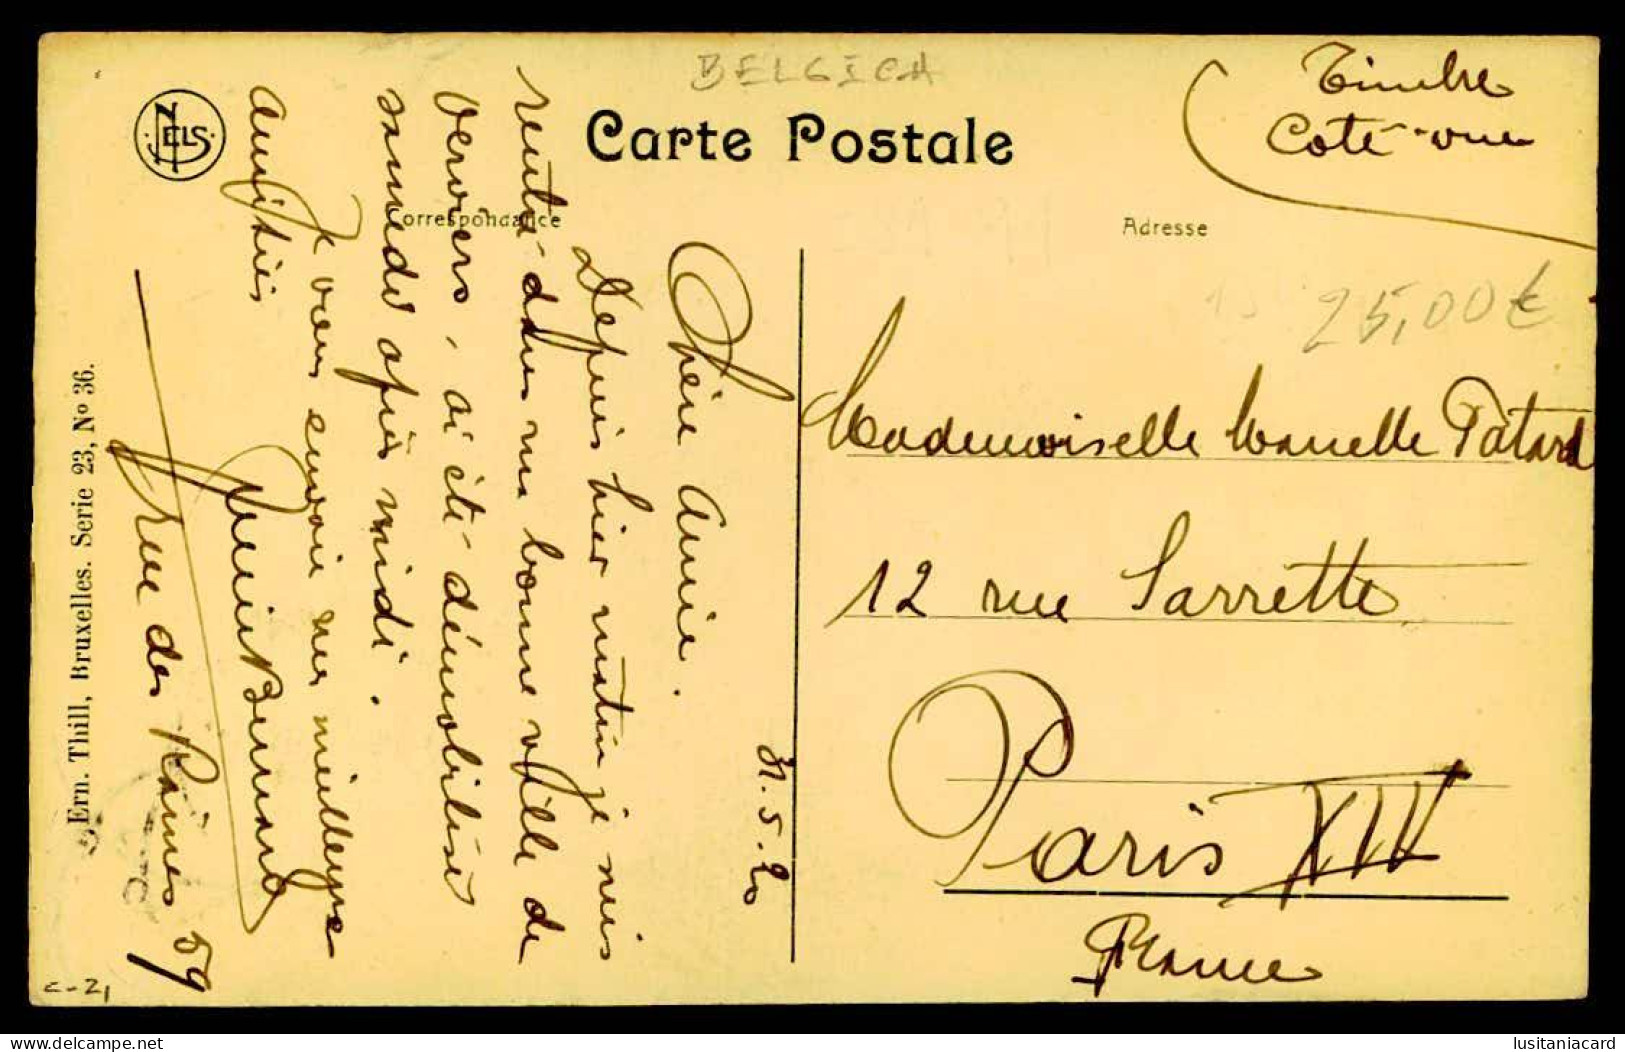 BELGICA
Carte Postale
Timbre
Coté-vue
NELS
Correspondance
Adresse
25,00€
31.5.20
Chère Amie.
Depuis hier matin je suis
rentré dans ma bonne ville de
Verviers, ai été démobilisé
samedi après midi.
Je vous envoie mes meilleures
amitiés
rue des Raines 59
Mademoiselle Patard
12 rue Sarrette
Paris XIV
France
Ern. Thill, Bruxelles. Serie 23, No 36.
c-21
delcampe.net
lusitaniacard